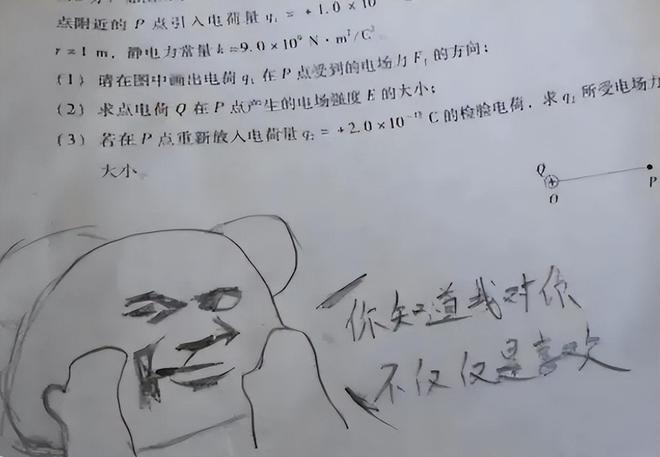 点附近的 P 点引入电荷量 q₁ = +1.0×10
r=1 m，静电力常量 k=9.0×10⁹ N·m²/C²
(1) 请在图中画出电荷 q₁ 在 P 点受到的电场力 F₁ 的方向；
(2) 求点电荷 Q 在 P 点产生的电场强度 E 的大小；
(3) 若在 P 点重新放入电荷量 q₂ = +2.0×10 C 的检验电荷，求 q₂ 所受电场力
大小。
Q
+
O
P
你知道我对你
不仅仅是喜欢